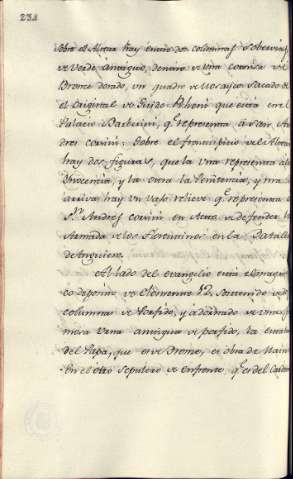 234
sobre el Altar hay entre dos columnas sobervias
de verde antiguo, dentro de una cornisa de
Bronce dorado, un quadro de mosayco sacado de
el original de Guido Rheni que esta en el
Palacio Barberini, q.e representa à San An
dres corsini: sobre el frontispicio de el Altar
hay dos figuras, que la una representa a la
Ynocencia, y la otra la Penitencia, y mas
arriva hay un vajo relieve q.e representa a
S.n Andres corsini en Acto de defender la
Armada de los Florentinos en la Batalla
de Anguiera.
Al lado del evangelio esta el magnifi
co deposito de Clemente 12. sostenido de dos
columnas de Porfido, y adornado de una fa
mosa Urna antigua de porfido, la estatua
del Papa, que es de Bronce, es obra de Maini
En el otro sepulcro de enfrente, q.e es del Carden